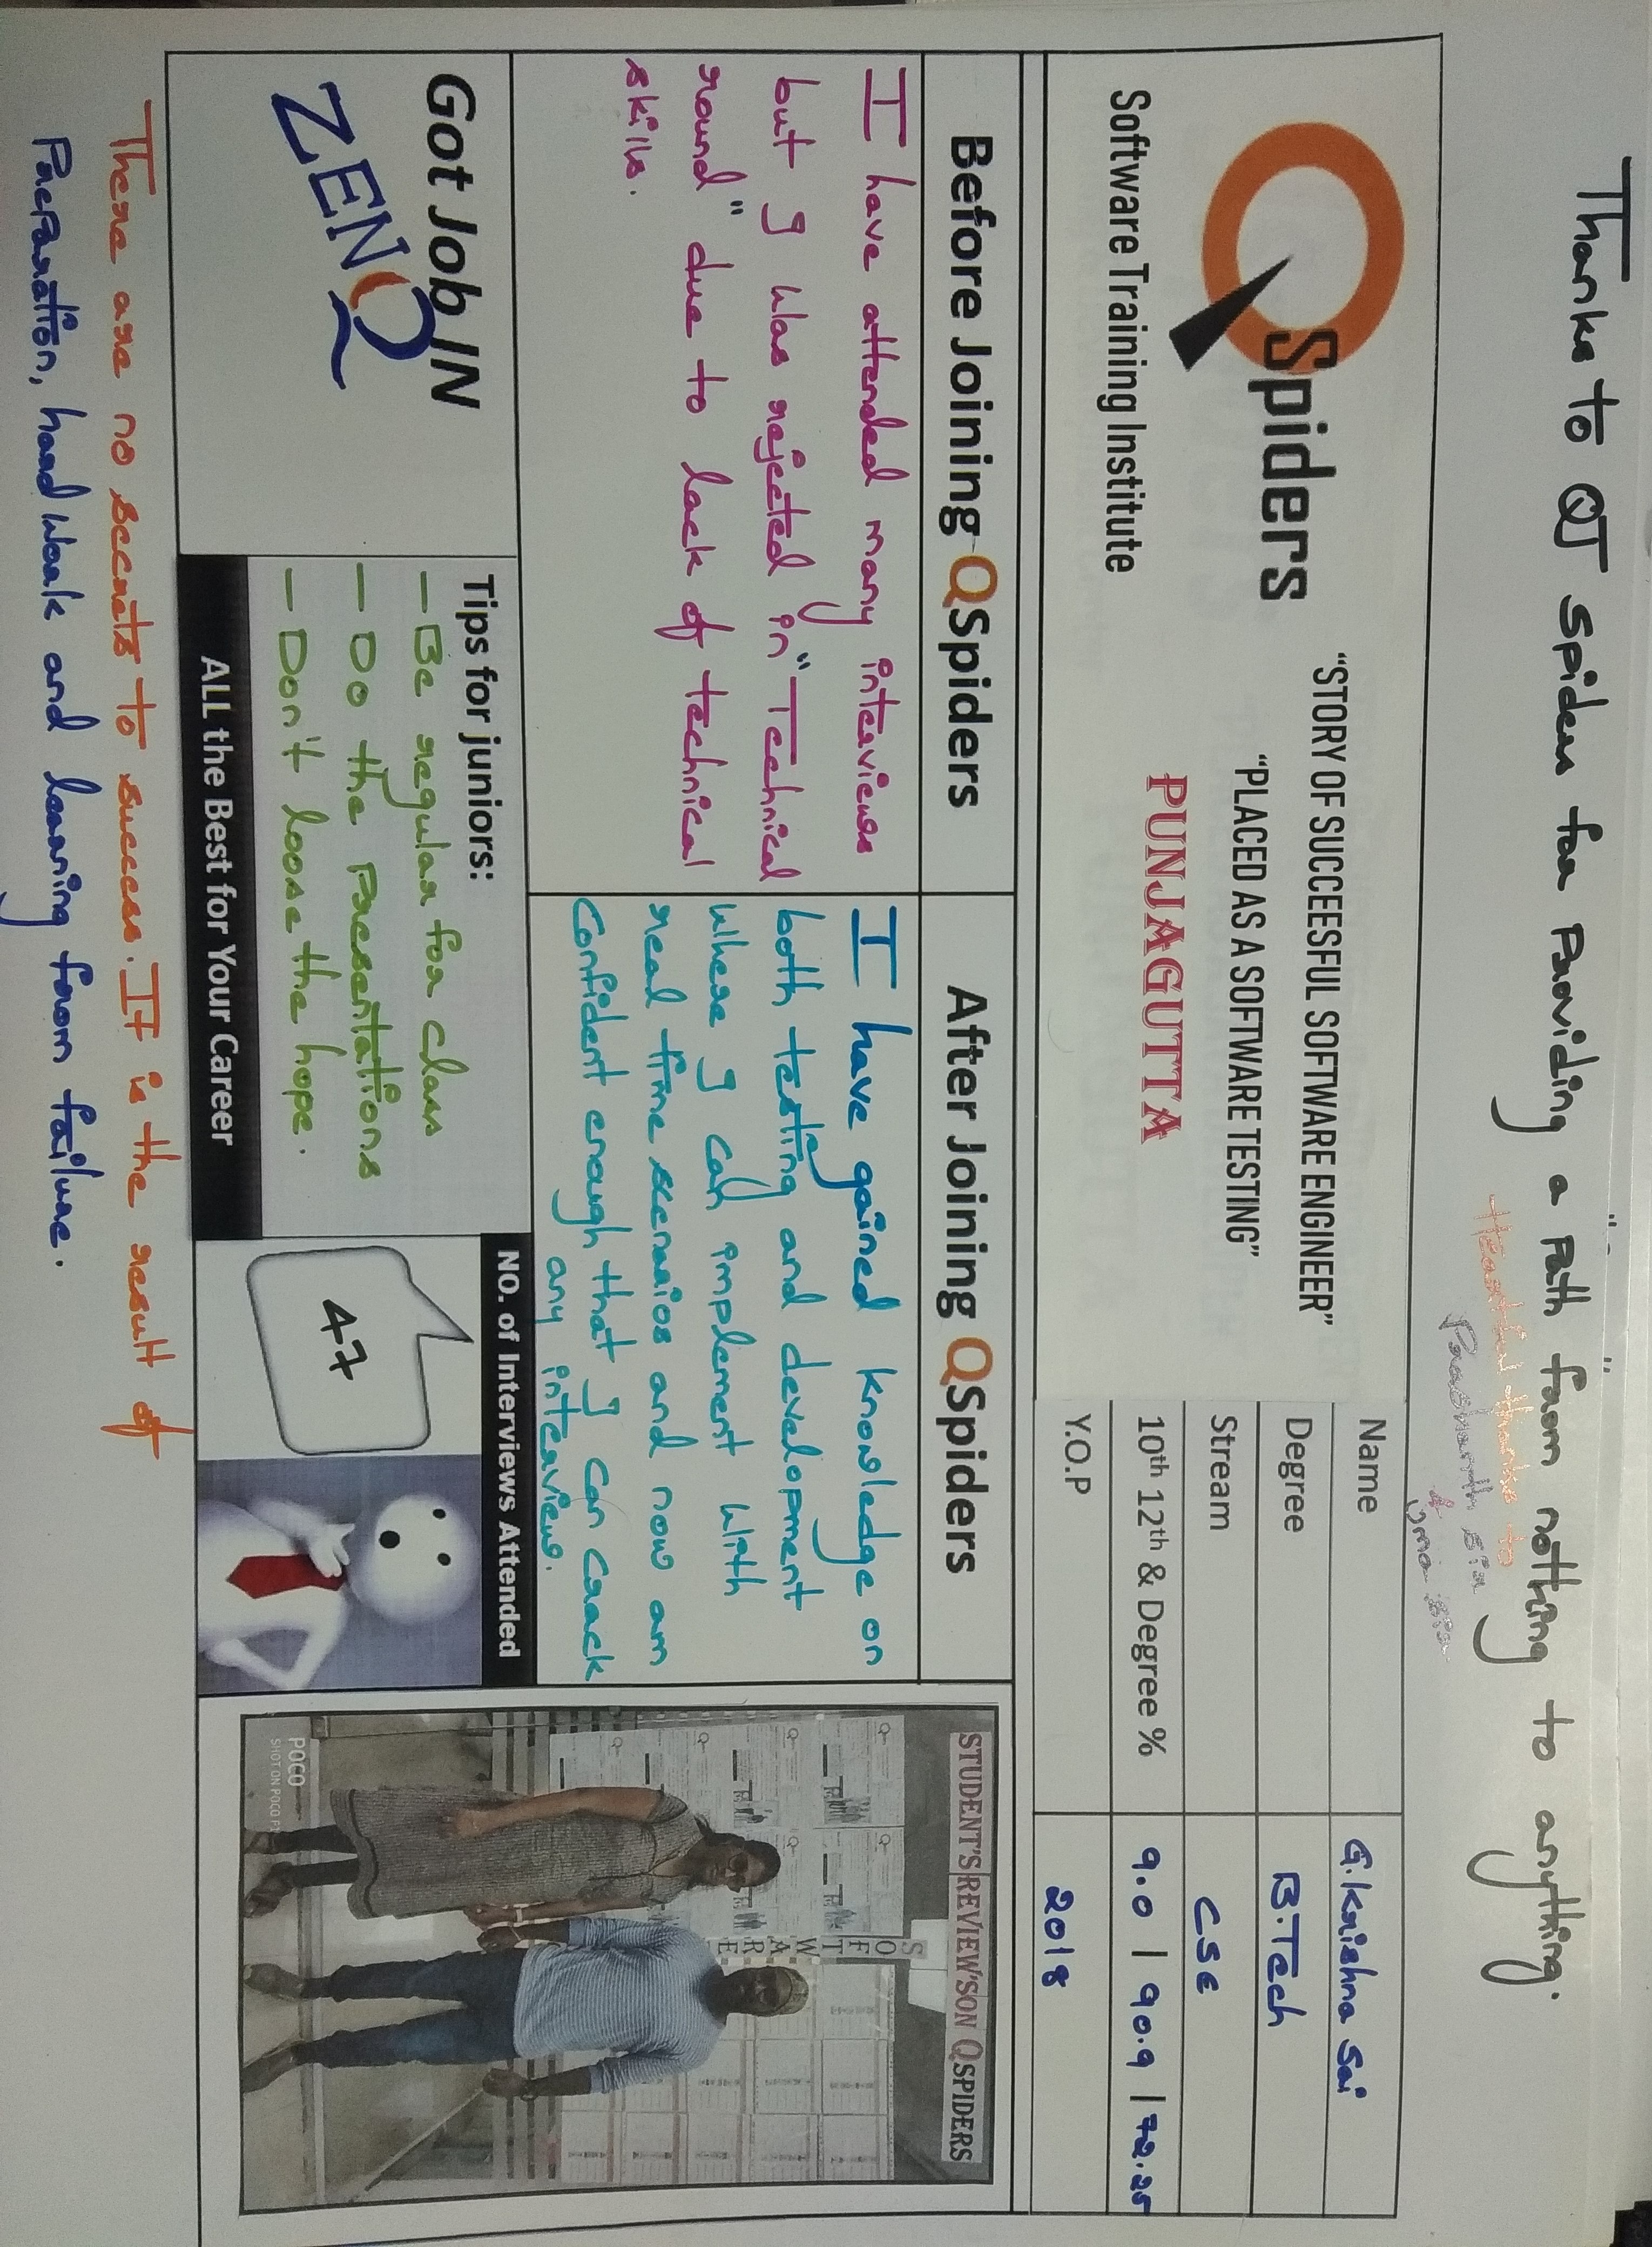 Thanks to QJ spiders for Providing a Path from nothing to anything.
Heartful thanks to
Prashanth sir
&
sir
QSpiders
Software Training Institute
"STORY OF SUCCEESFUL SOFTWARE ENGINEER"
"PLACED AS A SOFTWARE TESTING"
PUNJAGUTTA
Name G.Krishna Sai
Degree B.Tech
Stream CSE
10th 12th & Degree % 9.0 | 90.9 | 72.25
Y.O.P 2018
Before Joining QSpiders
I have attended many interviews
but I was rejected in "Technical
round" due to lack of technical
skills.
After Joining QSpiders
I have gained knowledge on
both testing and development
where I can implement with
real time scenraios and now am
confident enough that I can crack
any interview.
Got Job IN
ZENQ
Tips for juniors:
- Be regular for class
- Do the Presentations
- Don't loose the hope.
ALL the Best for Your Career
NO. of Interviews Attended
47
STUDENT'S REVIEW'S ON QSPIDERS
SOFTWARE
POCO
SHOT ON POCO F1
There are no secrets to success. It is the result of
Preparation, hard work and learning from failure.